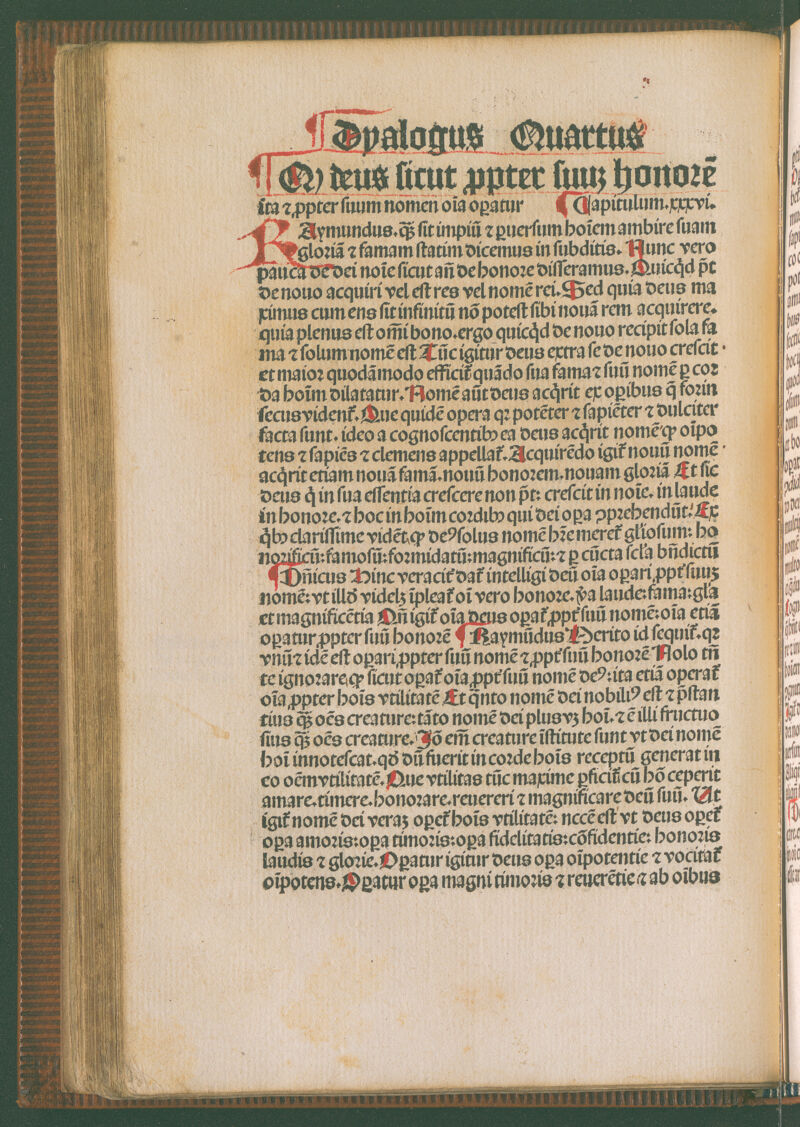 ¶ Dyalogus Quartus
¶ Qꝫ deus sicut ꝓpter suuꝫ honorē
ita ⁊ ꝓpter suum nomen oīa oꝑatur ¶ Capitulum.xxxvi.
RAymundus.q̄ꝫ sit impiū ⁊ ꝑuersum hoīem ambire suam
gloriā ⁊ famam statim dicemus in subditis. Nunc vero
pauca de dei noīe sicut an̄ de honore disseramus. Quicq̇d p̄t
de nouo acquiri vel est res vel nomē rei. Sed quia deus ma
ximus cum ens sit infinitū nō potest sibi nouā rem acquirere.
quia plenus est om̄i bono.ergo quicq̇d de nouo recipit sola fa
ma ⁊ solum nomē est Tūc igitur deus extra se de nouo crescit.
et maior quodāmodo efficit᷑ quādo sua fama ⁊ suū nomē ꝑ cor
da hoīm dilatatur. Nomē aūt deus acq̇rit ex oꝑibus q̄ forin
secus vident᷑. Que quidē opera qꝛ potēter ⁊ sapiēter ⁊ dulciter
facta sunt. ideo a cognoscentibꝰ ea deus acq̇rit nomē ꝙ oīpo
tens ⁊ sapiēs ⁊ clemens appellat᷑. Acquirēdo igit᷑ nouū nomē.
acq̇rit etiam nouā famā.nouū honorem.nouam gloriā Et sic
deus q̇ in sua essentia crescere non p̄t: crescit in noīe. in laude
in honore.⁊ hoc in hoīm cordibꝰ qui dei oꝑa ↄprehendūt. Ex
q̇bꝰ clarissime vidēt.ꝙ deꝰ solus nomē hr̄e meret᷑ gl̄iosum: ho
norificū: famosū: formidatū: magnificū: ⁊ ꝑ cūcta scl̄a bn̄dictū
¶ Dn̄icus Hinc veracit᷑ dat᷑ intelligi deū oīa oꝑari ꝓpt᷑ suuꝫ
nomē: vt illd̄ videlꝫ īpleat᷑ oī vero honore. ꝟa laude: fama: gl̄a
et magnificētia Qn̄ igit᷑ oīa deus oꝑat᷑ ꝓpt᷑ suū nomē: oīa etiā
oꝑatur ꝓpter suū honorē ¶ Raymūdus Merito id sequit᷑. qꝛ
vnū ⁊ idē est oꝑari ꝓpter suū nomē ⁊ ꝓpt᷑ suū honorē Nolo tn̄
te ignorare.ꝙ sicut oꝑat᷑ oīa ꝓpt᷑ suū nomē deꝰ: ita etiā operat᷑
oīa ꝓpter hoīs vtilitatē Et q̄nto nomē dei nobiliꝰ est ⁊ p̄stan
tius q̄ꝫ oēs creature: tāto nomē dei plus vꝫ hoī. ⁊ ē illi fructuo
sius q̄ꝫ oēs creature. Iō em̄ creature īstitute sunt vt dei nomē
hoī innotescat.qd̄ dū fuerit in corde hoīs receptū generat in
eo oēm vtilitatē. Que vtilitas tūc maxime ꝑficit᷑ cū hō ceperit
amare.timere.honorare.reuereri ⁊ magnificare deū suū. Ut
igit᷑ nomē dei veraꝫ oꝑet᷑ hoīs vtilitatē: nccē est vt deus oꝑet᷑
oꝑa amoris: oꝑa timoris: oꝑa fidelitatis: cōfidentie: honoris
laudis ⁊ glorie. Oꝑatur igitur deus oꝑa oīpotentie ⁊ vocitat᷑
oīpotens. Oꝑatur oꝑa magni timoris ⁊ reuerētie ⁊ ab oībus